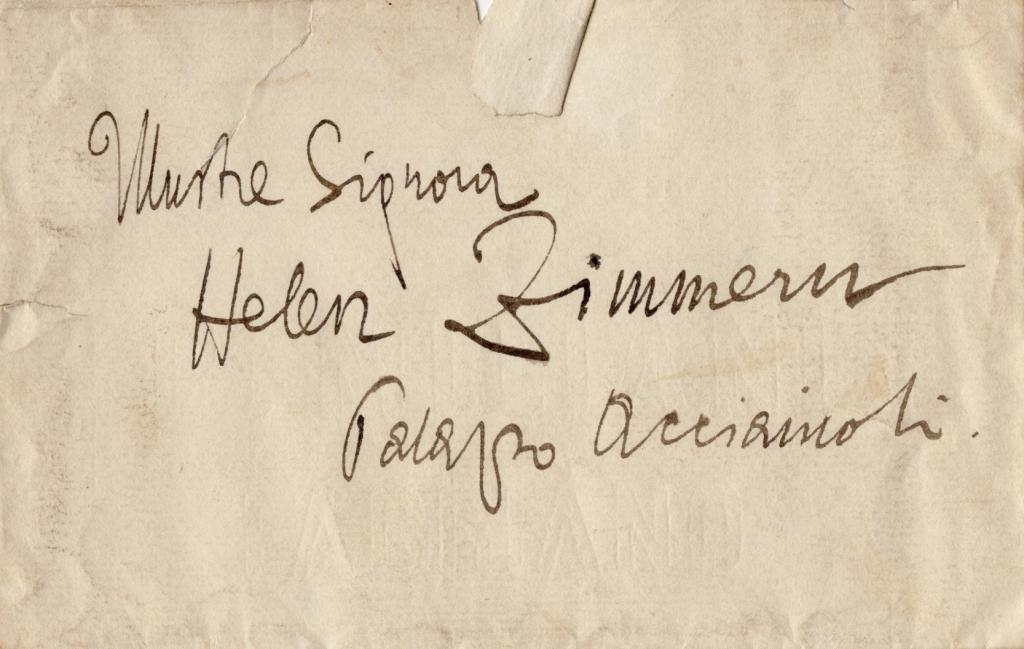 Illustre Signora
Helen Zimmern
Palazzo Acciaiuoli.